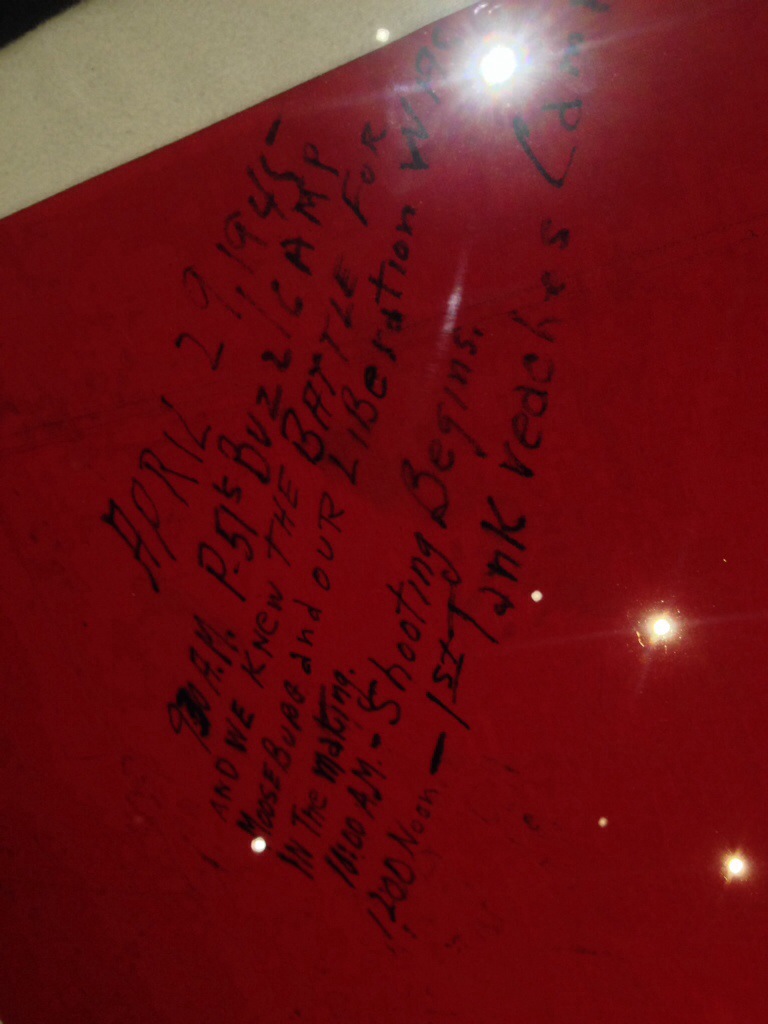 APRIL 29, 1945-
930 A.M. P-51s BUZZ CAMP
AND WE KNEW THE BATTLE FOR
MOOSEBURG and OUR LIBeration WAS
IN The making.
10:00 A.M. - Shooting Begins.
1200 Noon - 1st Tank reaches Camp